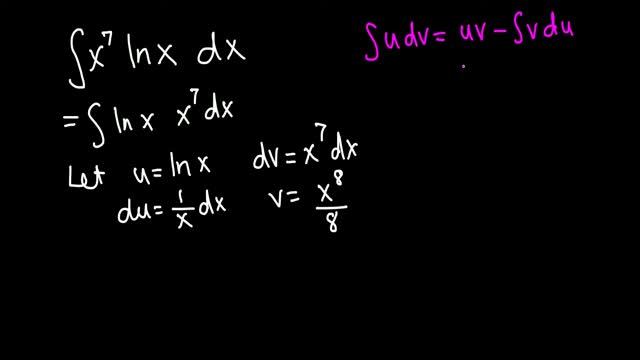 ∫x⁷ ln x dx
∫u dv = uv − ∫v du
= ∫ ln x x⁷ dx
Let u = ln x dv = x⁷ dx
du = 1/x dx v = x⁸/8